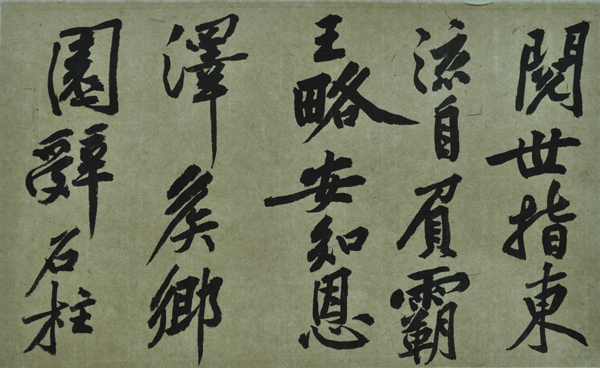 閱世指東
流自負霸
王略安知恩
澤矦鄉
園辭石柱